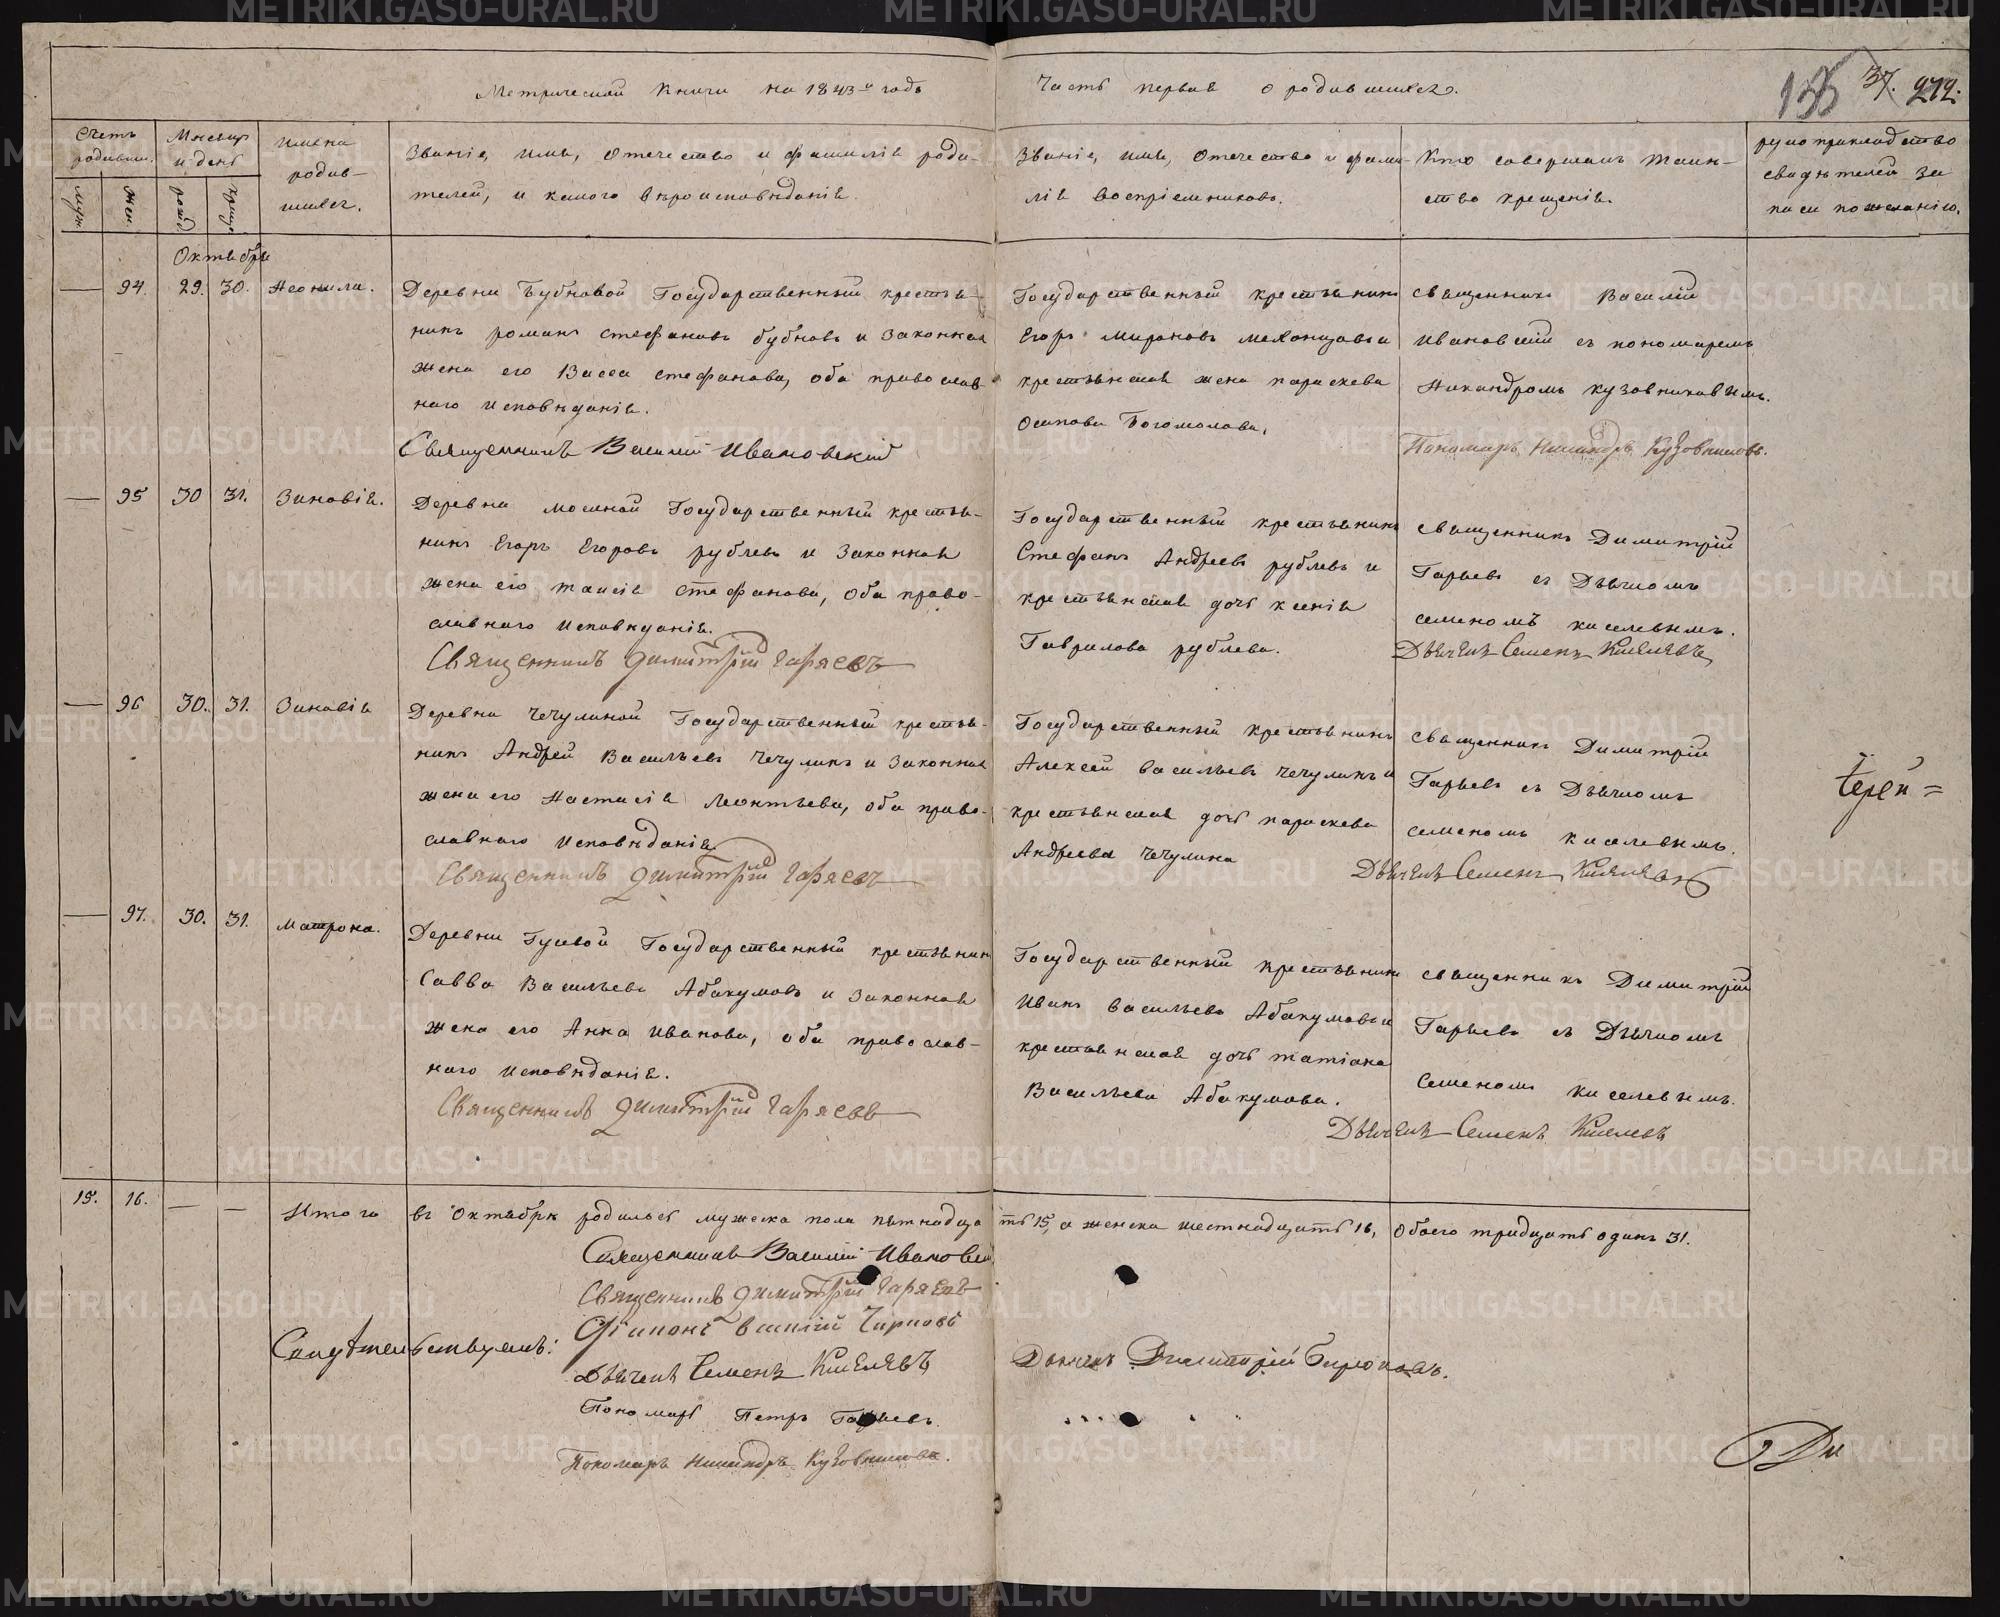 Метрической книги на 1843й годъ
Часть первая о родившихся.
37. 212.
Счетъ родивши.
Муж. Жен.
Мѣсяцъ и день
рожд крещ.
Имена
родив-
шихся.
Званіе, имя, отечество и фамилія роди-
телей, и какого вѣроисповѣданія.
Званіе, имя, отечество и фами-
лія воспріемниковъ.
Кто совершалъ таин-
ство крещенія.
рукоприкладство
свидѣтелей за
писи по желанію.
Октябрь
— 94. 29. 30. Неонила.
Деревни Бубновой Государственный крестья-
нинъ романъ стефановъ бубновъ и законная
жена его Васса стефанова, оба православ-
наго исповѣданія.
Священникъ Василій Ивановскій
Государственный крестьянинъ
Егоръ Мироновъ Мехонцовъ и
крестьянская жена параскева
осипова Богомолова.
священникъ Василій
Ивановскій съ пономаремъ
Никандромъ кузовниковымъ.
Пономарь Никандръ Кузовниковъ.
— 95 30 31. Зиновія.
Деревни мосиной Государственный крестья-
нинъ Егоръ Егоровъ рублевъ и законная
жена его таисія стефанова, оба право-
славнаго исповѣданія.
Священникъ Димитрій Гаряевъ
Государственный крестьянинъ
Стефанъ Андреевъ рублевъ и
крестьянская дочь ксенія
Гаврилова рублева.
священникъ Димитрій
Гаряевъ съ Дьячкомъ
семеномъ киселевымъ.
Дьячекъ Семенъ Киселевъ
— 96 30. 31. Зиновія
Деревни Чечулиной Государственный крестья-
нинъ Андрей Васильевъ Чечулинъ и законная
жена его Настасія Леонтьева, оба право-
славнаго исповѣданія.
Священникъ Димитрій Гаряевъ
Государственный крестьянинъ
Алексей васильевъ Чечулинъ и
крестьянская дочь параскева
Андреева Чечулина
священникъ Димитрій
Гаряевъ съ Дьячкомъ
семеномъ киселевымъ.
Дьячекъ Семенъ Киселевъ
— 97. 30. 31. Матрона.
Деревни Гусевой Государственный крестьянин
Савва Васильевъ Абакумовъ и законная
жена его Анна иванова, оба православ-
наго исповѣданія.
Священникъ Димитрій Гаряевъ
Государственный крестьянинъ
Иванъ васильевъ Абакумовъ и
крестьянская дочь татіана
Васильева Абакумова.
священникъ Димитрій
Гаряевъ съ Дьячкомъ
семеномъ киселевымъ.
Дьячекъ Семенъ Киселевъ
15. 16. — — Итого въ Октябрѣ родилось мужеска пола пятнадцать 15, а женска шестнадцать 16, обоего тридцать одинъ 31.
Священникъ Василій Ивановскі
Священникъ Димитрій Гаряевъ
Діаконъ Василій Чирковъ
Свидѣтельствуемъ:
Дьячекъ Семенъ Киселевъ
Дьячекъ Димитрій Бирюковъ.
Пономарь Петръ Гаряевъ.
Пономарь Никандръ Кузовниковъ.
METRIKI.GASO-URAL.RU